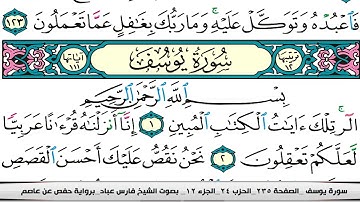 فَٱعۡبُدۡهُ وَتَوَكَّلۡ عَلَيۡهِۚ وَمَا رَبُّكَ بِغَٰفِلٍ عَمَّا تَعۡمَلُونَ ١٢٣
ترتيبها ١٢ سُورَةُ يُوسُفَ آياتها ١١١
بِسۡمِ ٱللَّهِ ٱلرَّحۡمَٰنِ ٱلرَّحِيمِ
الٓرۚ تِلۡكَ ءَايَٰتُ ٱلۡكِتَٰبِ ٱلۡمُبِينِ ١ إِنَّآ أَنزَلۡنَٰهُ قُرۡءَٰنًا عَرَبِيّٗا
لَّعَلَّكُمۡ تَعۡقِلُونَ ٢ نَحۡنُ نَقُصُّ عَلَيۡكَ أَحۡسَنَ ٱلۡقَصَصِ
سورة يوسف_ الصفحة ٢٣٥_ الحزب ٢٤_ الجزء ١٢ _ بصوت الشيخ فارس عباد_ برواية حفص عن عاصم